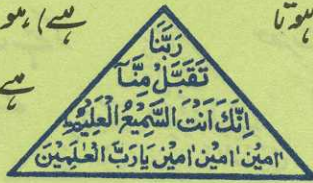 ہوتا
ہے، ہو
ہے
رَبَّنَا
تَقَبَّلْ مِنَّا
اِنَّكَ اَنْتَ السَّمِيْعُ الْعَلِيْمُ
اٰمِيْن اٰمِيْن اٰمِيْن يَارَبَّ الْعٰلَمِيْنَ